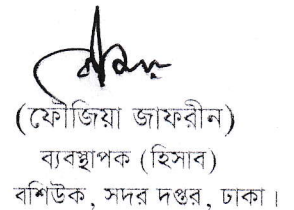 (ফৌজিয়া জাফরীন)
ব্যবস্থাপক (হিসাব)
বশিউক, সদর দপ্তর, ঢাকা।